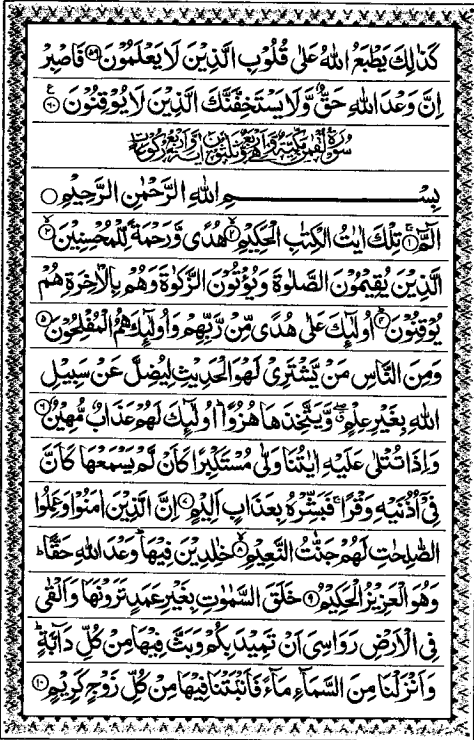 كَذٰلِكَ يَطْبَعُ اللّٰهُ عَلٰى قُلُوْبِ الَّذِيْنَ لَا يَعْلَمُوْنَ ۝۵۹ فَاصْبِرْ
اِنَّ وَعْدَ اللّٰهِ حَقٌّ وَّلَا يَسْتَخِفَّنَّكَ الَّذِيْنَ لَا يُوْقِنُوْنَ ۝۶۰
بِسْمِ اللّٰهِ الرَّحْمٰنِ الرَّحِيْمِ ۝
الٓمّٓ ۝۱ تِلْكَ اٰيٰتُ الْكِتٰبِ الْحَكِيْمِ ۝۲ هُدًى وَّرَحْمَةً لِّلْمُحْسِنِيْنَ ۝۳
الَّذِيْنَ يُقِيْمُوْنَ الصَّلٰوةَ وَيُؤْتُوْنَ الزَّكٰوةَ وَهُمْ بِالْاٰخِرَةِ هُمْ
يُوْقِنُوْنَ ۝۴ اُولٰٓئِكَ عَلٰى هُدًى مِّنْ رَّبِّهِمْ وَاُولٰٓئِكَ هُمُ الْمُفْلِحُوْنَ ۝۵
وَمِنَ النَّاسِ مَنْ يَّشْتَرِىْ لَهْوَ الْحَدِيْثِ لِيُضِلَّ عَنْ سَبِيْلِ
اللّٰهِ بِغَيْرِ عِلْمٍ ۖ وَّيَتَّخِذَهَا هُزُوًا ؕ اُولٰٓئِكَ لَهُمْ عَذَابٌ مُّهِيْنٌ ۝۶
وَاِذَا تُتْلٰى عَلَيْهِ اٰيٰتُنَا وَلّٰى مُسْتَكْبِرًا كَاَنْ لَّمْ يَسْمَعْهَا كَاَنَّ
فِىْٓ اُذُنَيْهِ وَقْرًا ۚ فَبَشِّرْهُ بِعَذَابٍ اَلِيْمٍ ۝۷ اِنَّ الَّذِيْنَ اٰمَنُوْا وَعَمِلُوا
الصّٰلِحٰتِ لَهُمْ جَنّٰتُ النَّعِيْمِ ۝۸ خٰلِدِيْنَ فِيْهَا ؕ وَعْدَ اللّٰهِ حَقًّا ؕ
وَهُوَ الْعَزِيْزُ الْحَكِيْمُ ۝۹ خَلَقَ السَّمٰوٰتِ بِغَيْرِ عَمَدٍ تَرَوْنَهَا وَاَلْقٰى
فِى الْاَرْضِ رَوَاسِىَ اَنْ تَمِيْدَ بِكُمْ وَبَثَّ فِيْهَا مِنْ كُلِّ دَآبَّةٍ ؕ
وَاَنْزَلْنَا مِنَ السَّمَآءِ مَآءً فَاَنْۢبَتْنَا فِيْهَا مِنْ كُلِّ زَوْجٍ كَرِيْمٍ ۝۱۰